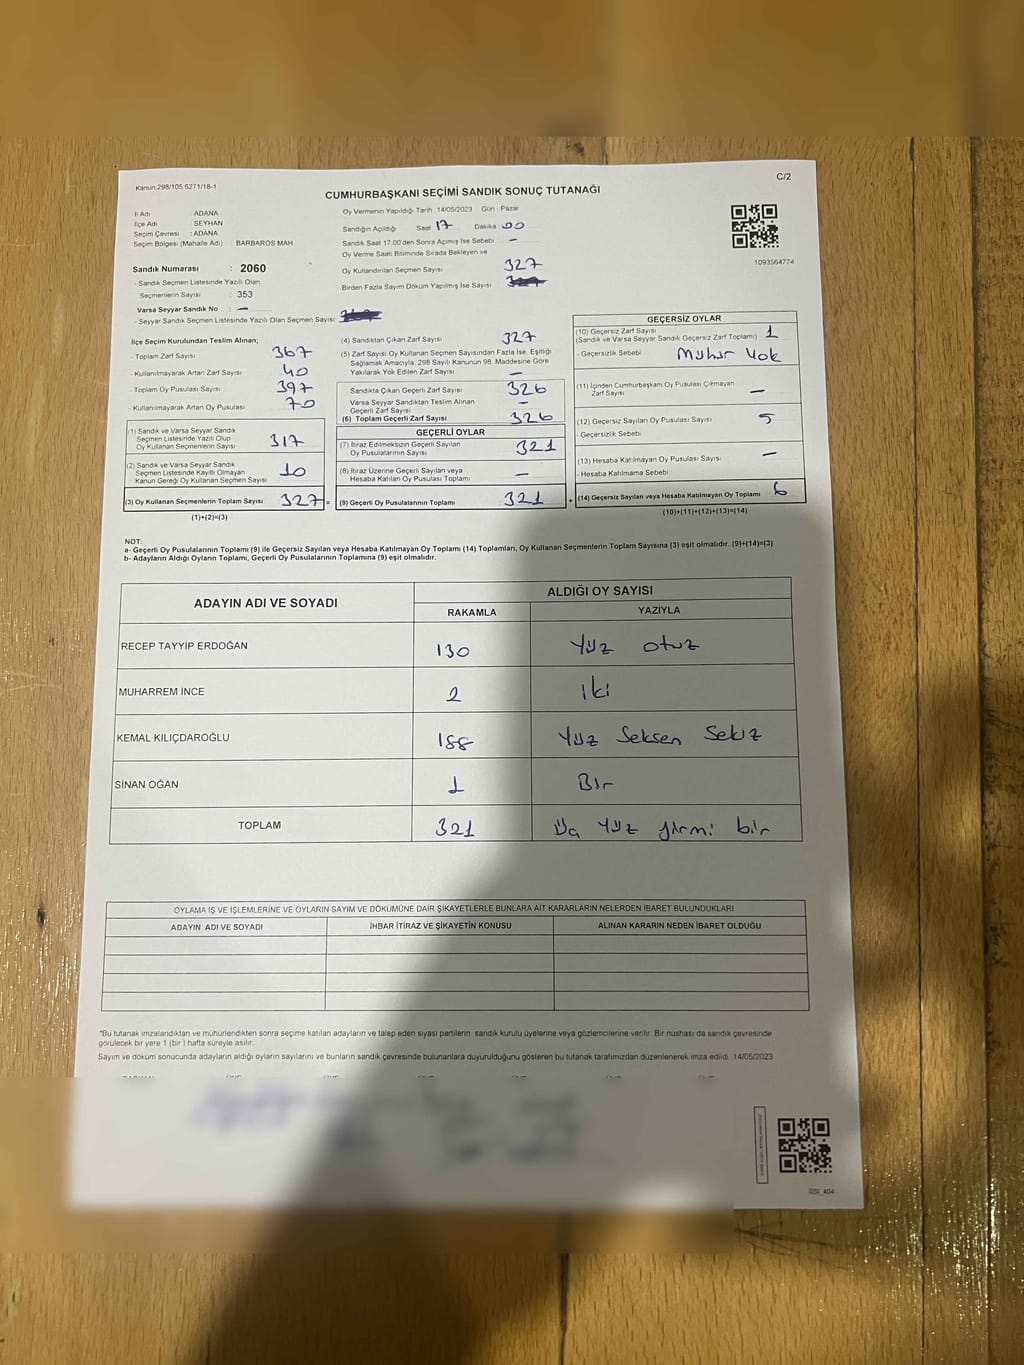 Kanun:298/105 6271/18-1
C/2
CUMHURBAŞKANI SEÇİMİ SANDIK SONUÇ TUTANAĞI
İl Adı : ADANA
İlçe Adı : SEYHAN
Seçim Çevresi : ADANA
Seçim Bölgesi (Mahalle Adı) BARBAROS MAH
Sandık Numarası : 2060
- Sandık Seçmen Listesinde Yazılı Olan
Seçmenlerin Sayısı : 353
Varsa Seyyar Sandık No : —
- Seyyar Sandık Seçmen Listesinde Yazılı Olan Seçmen Sayısı:
Oy Vermenin Yapıldığı Tarih 14/05/2023 Gün : Pazar
Sandığın Açıldığı Saat 17 Dakika 00
Sandık Saat 17:00'den Sonra Açımış İse Sebebi —
Oy Verme Saati Bitiminde Sırada Bekleyen ve
Oy Kullandırılan Seçmen Sayısı 327
Birden Fazla Sayım Döküm Yapılmış İse Sayısı
1093564774
İlçe Seçim Kurulundan Teslim Alınan;
- Toplam Zarf Sayısı 367
- Kullanılmayarak Artan Zarf Sayısı 40
- Toplam Oy Pusulası Sayısı 397
- Kullanılmayarak Artan Oy Pusulası 70
(1) Sandık ve Varsa Seyyar Sandık
Seçmen Listesinde Yazılı Olup
Oy Kullanan Seçmenlerin Sayısı 317
(2) Sandık ve Varsa Seyyar Sandık
Seçmen Listesinde Kayıtlı Olmayan
Kanun Gereği Oy Kullanan Seçmen Sayısı 10
(3) Oy Kullanan Seçmenlerin Toplam Sayısı 327 =
(1)+(2)=(3)
(4) Sandıktan Çıkan Zarf Sayısı 327
(5) Zarf Sayısı Oy Kullanan Seçmen Sayısından Fazla İse, Eşitliği
Sağlamak Amacıyla, 298 Sayılı Kanunun 98. Maddesine Göre
Yakılarak Yok Edilen Zarf Sayısı —
Sandıkta Çıkan Geçerli Zarf Sayısı 326
Varsa Seyyar Sandıktan Teslim Alınan
Geçerli Zarf Sayısı —
(6) Toplam Geçerli Zarf Sayısı 326
GEÇERLİ OYLAR
(7) İtiraz Edilmeksizin Geçerli Sayılan
Oy Pusulalarının Sayısı 321
(8) İtiraz Üzerine Geçerli Sayılan veya
Hesaba Katılan Oy Pusulası Toplamı —
(9) Geçerli Oy Pusulalarının Toplamı 321 +
GEÇERSİZ OYLAR
(10) Geçersiz Zarf Sayısı 1
(Sandık ve Varsa Seyyar Sandık Geçersiz Zarf Toplamı)
- Geçersizlik Sebebi Mühür Yok
(11) İçinden Cumhurbaşkanı Oy Pusulası Çıkmayan
Zarf Sayısı —
(12) Geçersiz Sayılan Oy Pusulası Sayısı 5
- Geçersizlik Sebebi
(13) Hesaba Katılmayan Oy Pusulası Sayısı —
- Hesaba Katılmama Sebebi
(14) Geçersiz Sayılan veya Hesaba Katılmayan Oy Toplamı 6
(10)+(11)+(12)+(13)=(14)
NOT:
a- Geçerli Oy Pusulalarının Toplamı (9) ile Geçersiz Sayılan veya Hesaba Katılmayan Oy Toplamı (14) Toplamları, Oy Kullanan Seçmenlerin Toplam Sayısına (3) eşit olmalıdır. (9)+(14)=(3)
b- Adayların Aldığı Oyların Toplamı, Geçerli Oy Pusulalarının Toplamına (9) eşit olmalıdır.
ADAYIN ADI VE SOYADI ALDIĞI OY SAYISI
RAKAMLA YAZIYLA
RECEP TAYYİP ERDOĞAN 130 Yüz otuz
MUHARREM İNCE 2 iki
KEMAL KILIÇDAROĞLU 188 Yüz Seksen Sekiz
SİNAN OĞAN 1 Bir
TOPLAM 321 Üç Yüz yirmi bir
OYLAMA İŞ VE İŞLEMLERİNE VE OYLARIN SAYIM VE DÖKÜMÜNE DAİR ŞİKAYETLERLE BUNLARA AİT KARARLARIN NELERDEN İBARET BULUNDUKLARI
ADAYIN ADI VE SOYADI İHBAR İTİRAZ VE ŞİKAYETİN KONUSU ALINAN KARARIN NEDEN İBARET OLDUĞU
"Bu tutanak imzalandıktan ve mühürlendikten sonra seçime katılan adayların ve talep eden siyasi partilerin sandık kurulu üyelerine veya gözlemcilerine verilir. Bir nüshası da sandık çevresinde
görülecek bir yere 1 (bir) hafta süreyle asılır.
Sayım ve döküm sonucunda adayların aldığı oyların sayılarını ve bunların sandık çevresinde bulunanlara duyurulduğunu gösteren bu tutanak tarafımızdan düzenlenerek imza edildi. 14/05/2023
SSI_404